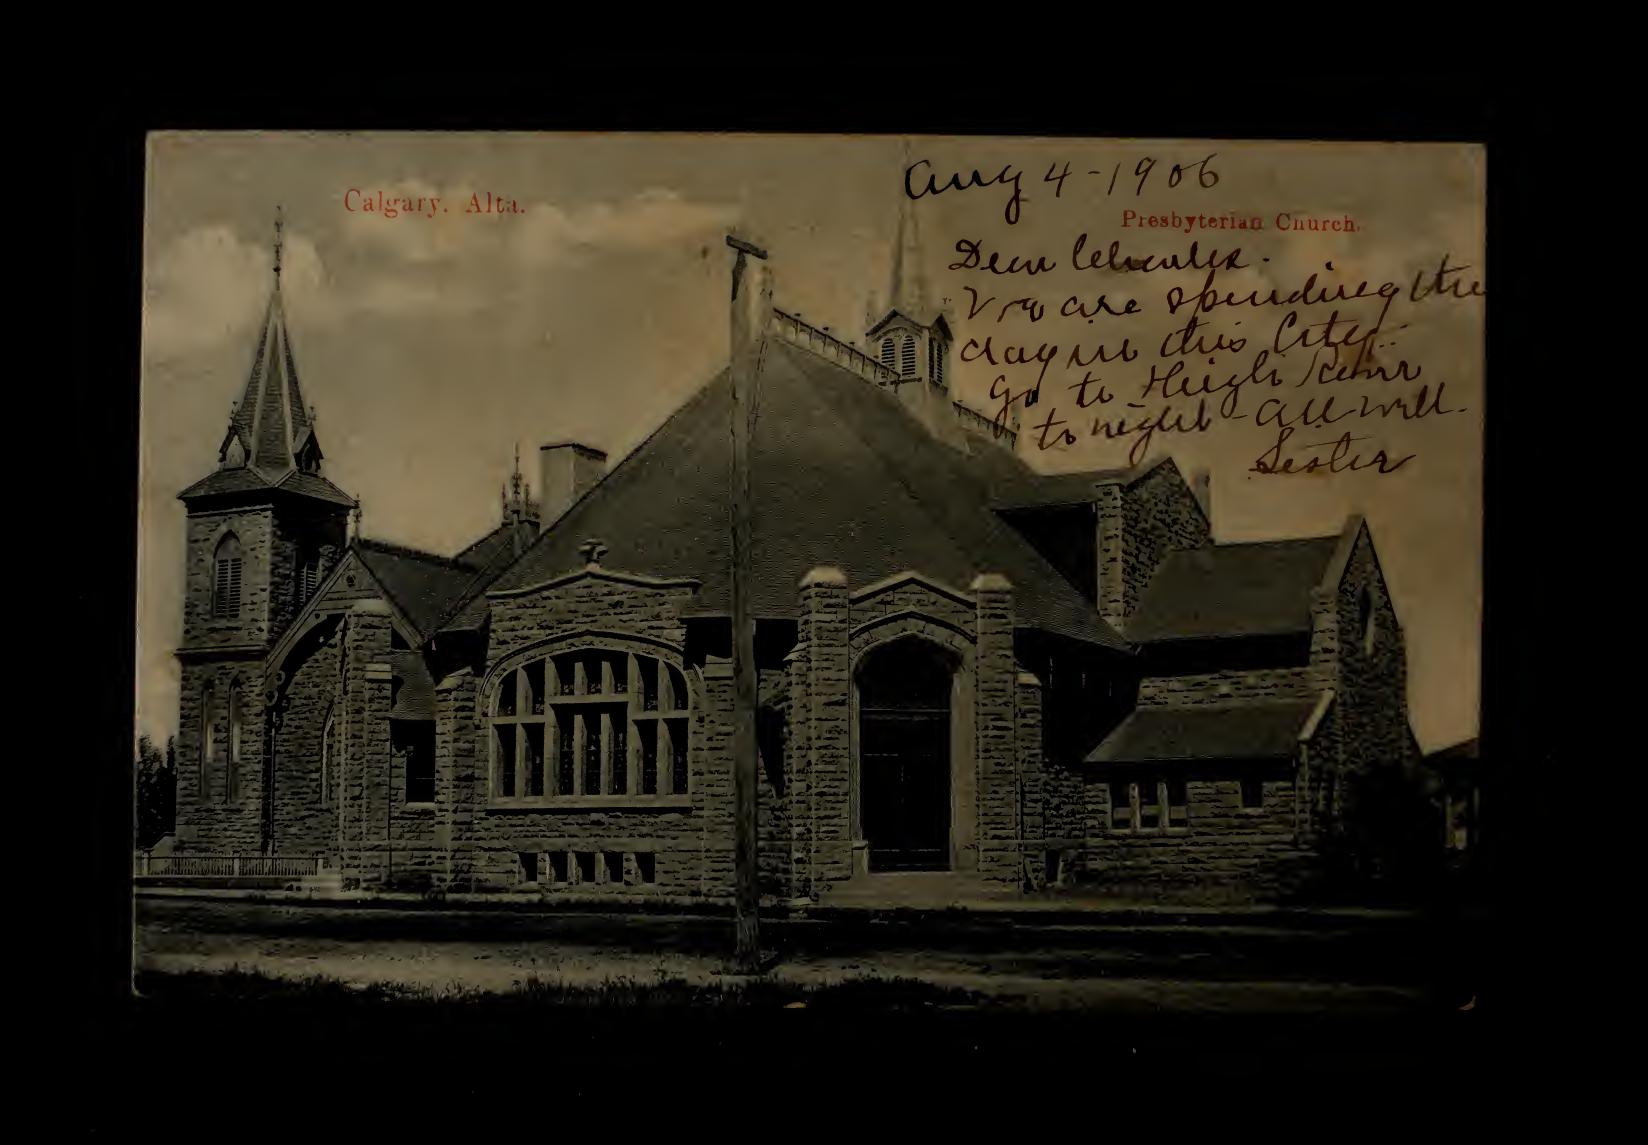 Calgary. Alta.
Aug 4-1906
Presbyterian Church.
Dear Charles.
We are spending the
day in this City..
Go to High River
to night - all well.
Sester